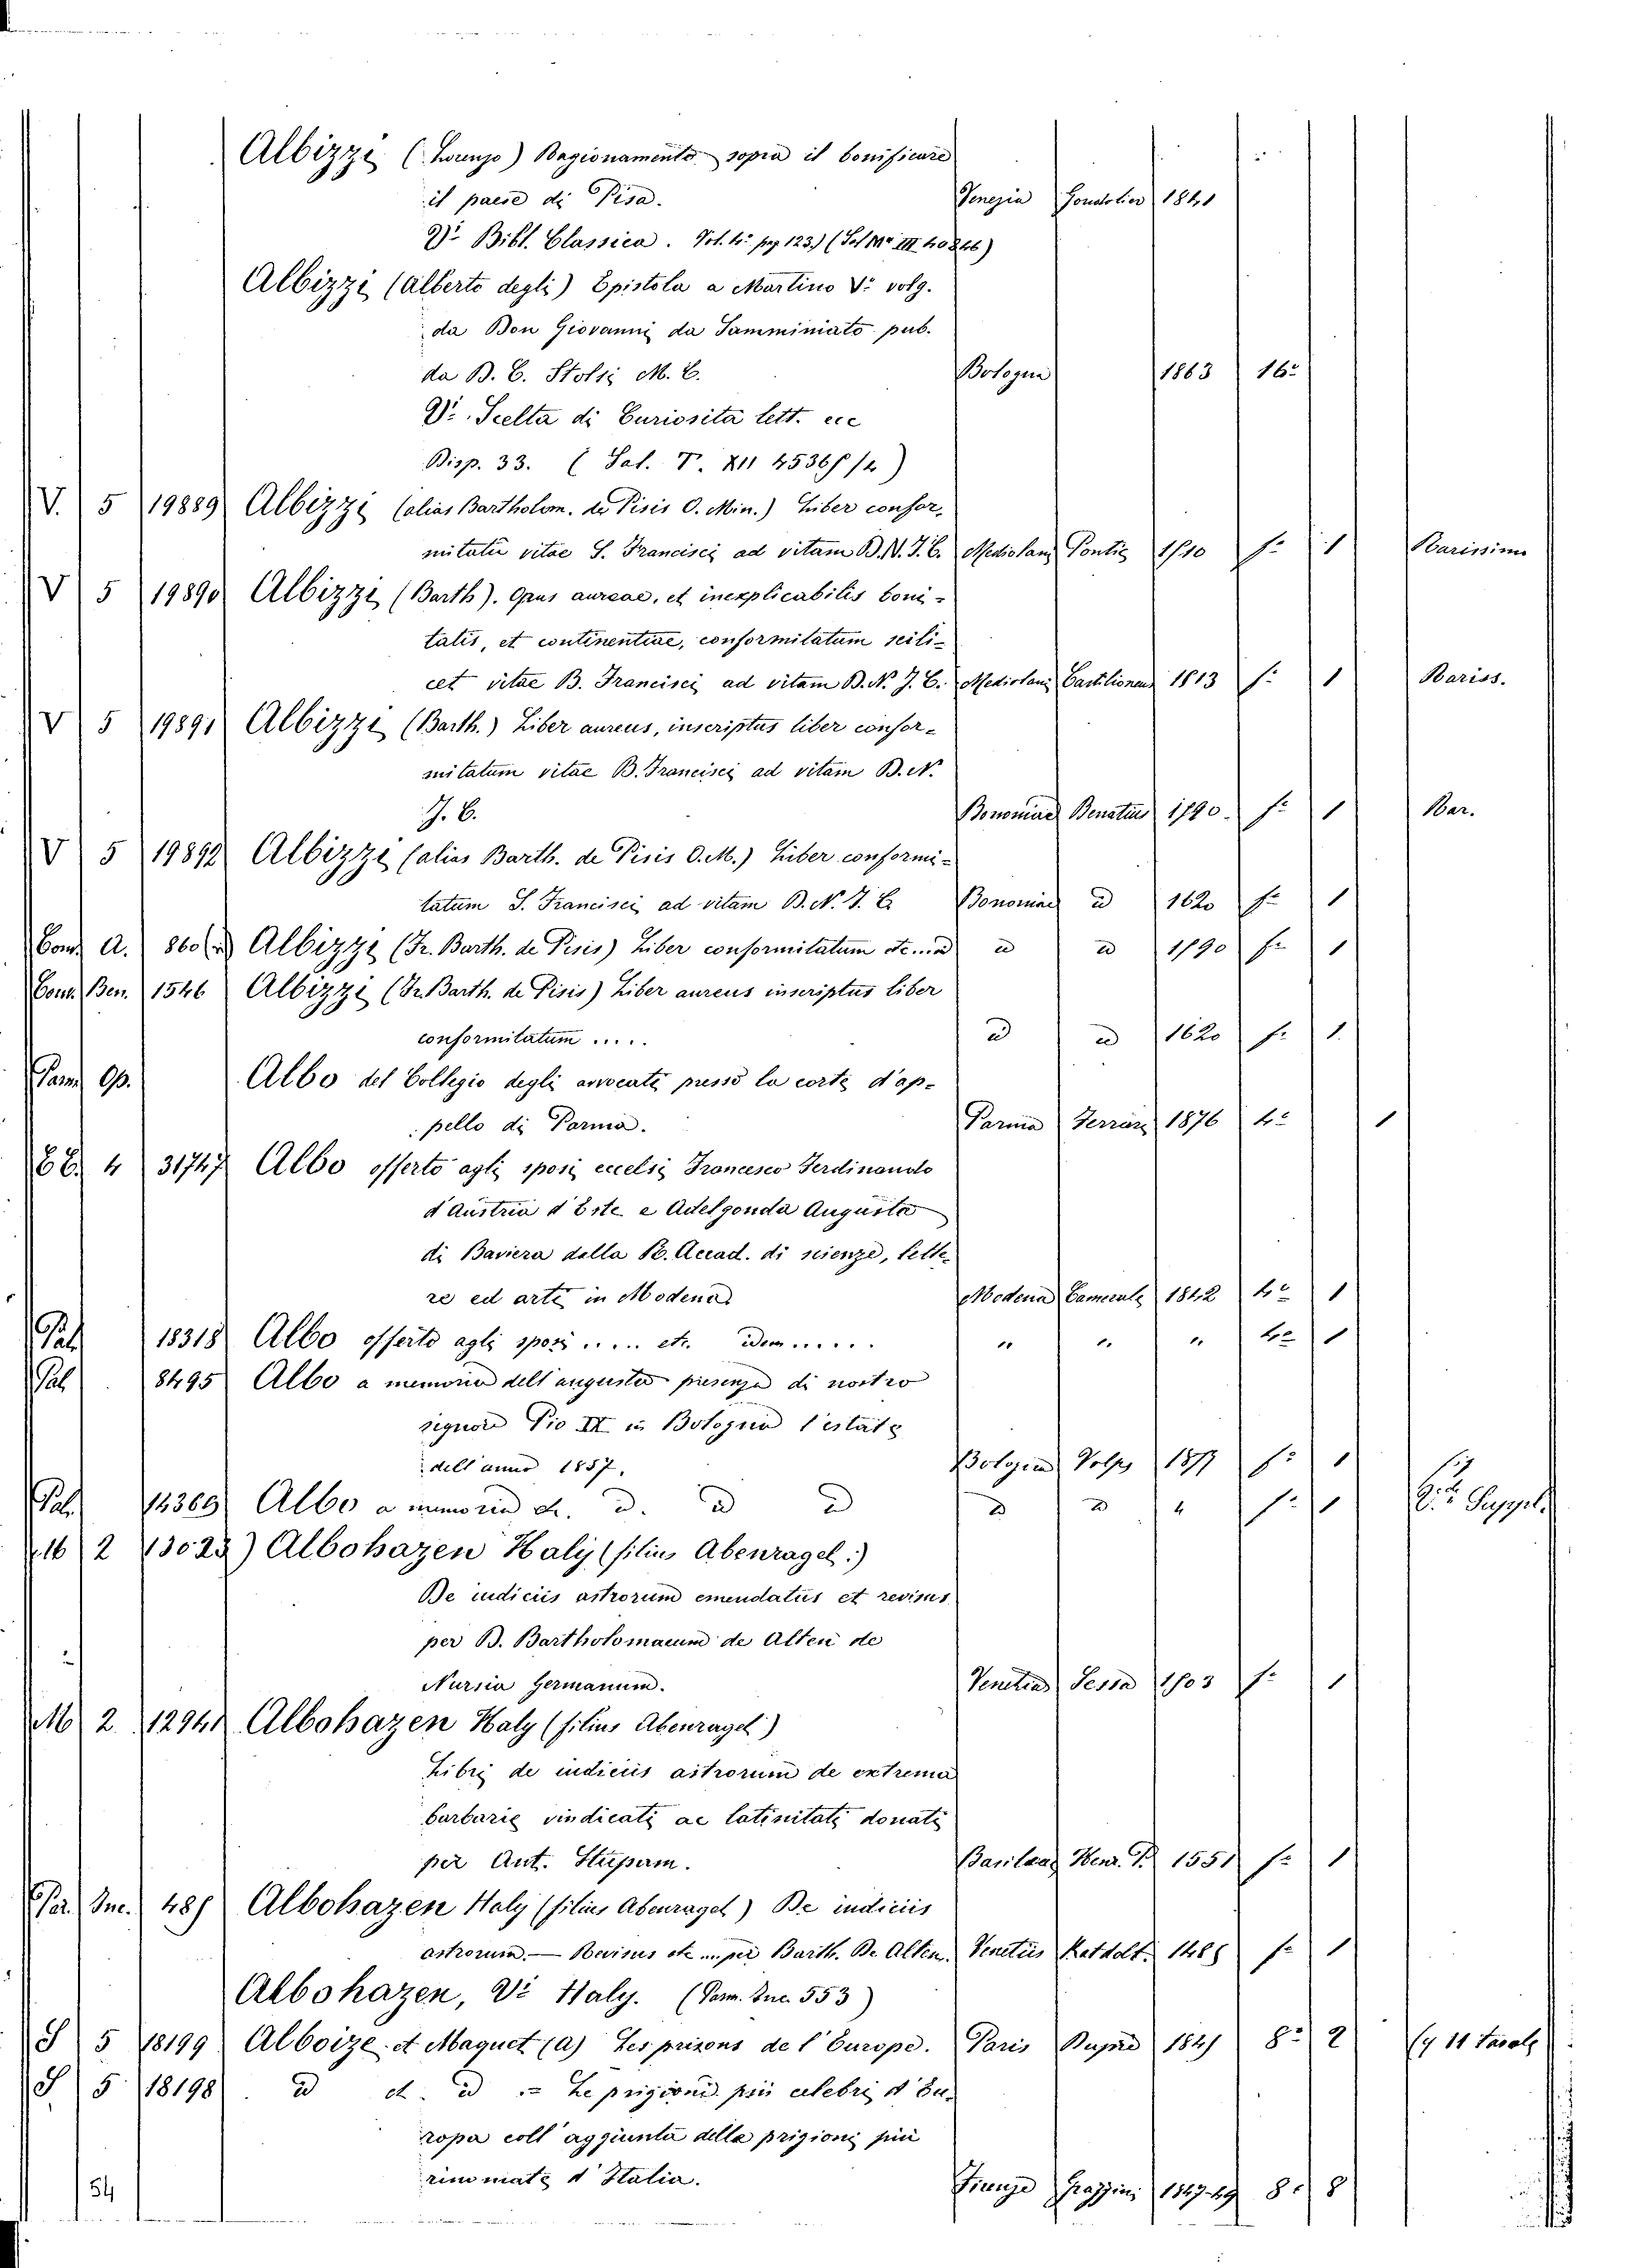 Albizzi (Lorenzo) Ragionamento sopra il bonificare
il paese di Pisa. Venezia Gondolier 1841
V: Bibl. Classica. Vol. 4: pag 123) (Sal Mr III 40246)
Albizzi (Alberto degli) Epistola a Martino V: volg.
da Don Giovanni da Samminiato pub.
da D. C. Stolsi M. C. Bologna 1863 16:
V: Scelta di Curiosita lett. ecc
Disp. 33. ( Sal. T. XII 4536
V. 5 19889 Albizzi (alias Bartholom. de Pisis O. Min.) Liber confor-
mitatu vitae S. Francisci ad vitam D. N. J. C. Mediolani Pontic 1510 f: 1 Rarissimo
V 5 19890 Albizzi (Barth). Opus aureae, et inexplicabilis boni-
tatis, et continentiae, conformitatum scili-
cet vitae B. Francisci ad vitam D. N. J. C. Mediolani Castilioneus 1513 f: 1 Rariss.
V 5 19891 Albizzi (Barth.) Liber aureus, inscriptus liber confor-
mitatum vitae B. Francisci ad vitam D. N.
J. C. Bononiae Benatius 1590. f: 1 Rar.
V 5 19892 Albizzi (alias Barth. de Pisis O. M.) Liber conformi-
tatum S. Francisci ad vitam D. N. J. C. Bononiae id 1620 f: 1
Conv. A. 860 Albizzi (Fr. Barth. de Pisis) Liber conformitatum id id 1590 f: 1
Conv. Ben. 1546 Albizzi (Fr. Barth. de Pisis) Liber aureus inscriptus liber
conformitatum ..... id id 1620 f: 1.
Parm. Op. Albo del Collegio degli avvocati presso la corte d'ap-
pello di Parma. Parma Ferrari 1876 4: 1
4 31747 Albo offerto agli sposi eccelsi Francesco Ferdinando
d'Austria d'Este e Adelgonda Augusta
di Baviera dalla R. Accad. di scienze, lette-
re ed arti in Modena Modena Camerale 1842 4: 1
Pal 18318 Albo offerto agli sposi ..... etc. idem ...... " " " 4: 1
Pal 8495 Albo a memoria dell'augusta presenza di nostro
signore Pio IX in Bologna l'estate
dell'anno 1857. Bologna Volpe f: 1
Pal. 14369 Albo a memoria id id id id f: 1 Suppel.
2 13023) Albohazen Haly (filius Abenragel:)
De iudiciis astrorum emendatus et revisus
per B. Bartholomaeum de Alten de
Nursia Germanum. Venetiis Sessa 1503 f: 1
M 2 12941 Albohazen Haly (filius Abenragel)
Libri de iudiciis astrorum de extrema
barbarie vindicati ac latinitati donati
per Ant. Stupam. Basileae Henr. P. 1551 f: 1
Par. Inc. 485 Albohazen Haly (filius Abenragel) De iudiciis
astrorum. — Revisus etc ... per Barth. De Alten. Venetiis Ratdolt. 1485 f: 1
Albohazen, V: Haly. (Parm. Inc. 553)
S 5 18199 Alboize et Maquet (A) Les prisons de l'Europe. Paris 184 8: 2
S 5 18198 id et id := Le prigioni più celebri d'Eu-
ropa coll'aggiunta della prigioni più
rinomate d'Italia. Firenze Grazzini 1847-49 8: 8
54